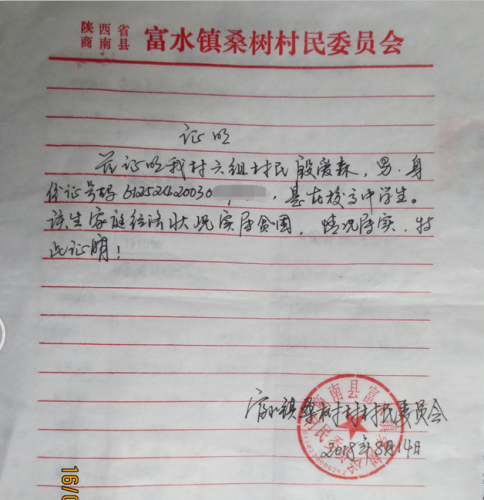 陕西省
商南县
富水镇桑树村民委员会
证明
兹证明我村六组村民殷爱森，男，身
份证号码61252420030，是在校高中学生。
该生家庭经济状况实属贫困，情况属实，特
此证明！
富水镇桑树村村民委员会
2018年8月14日
16/0